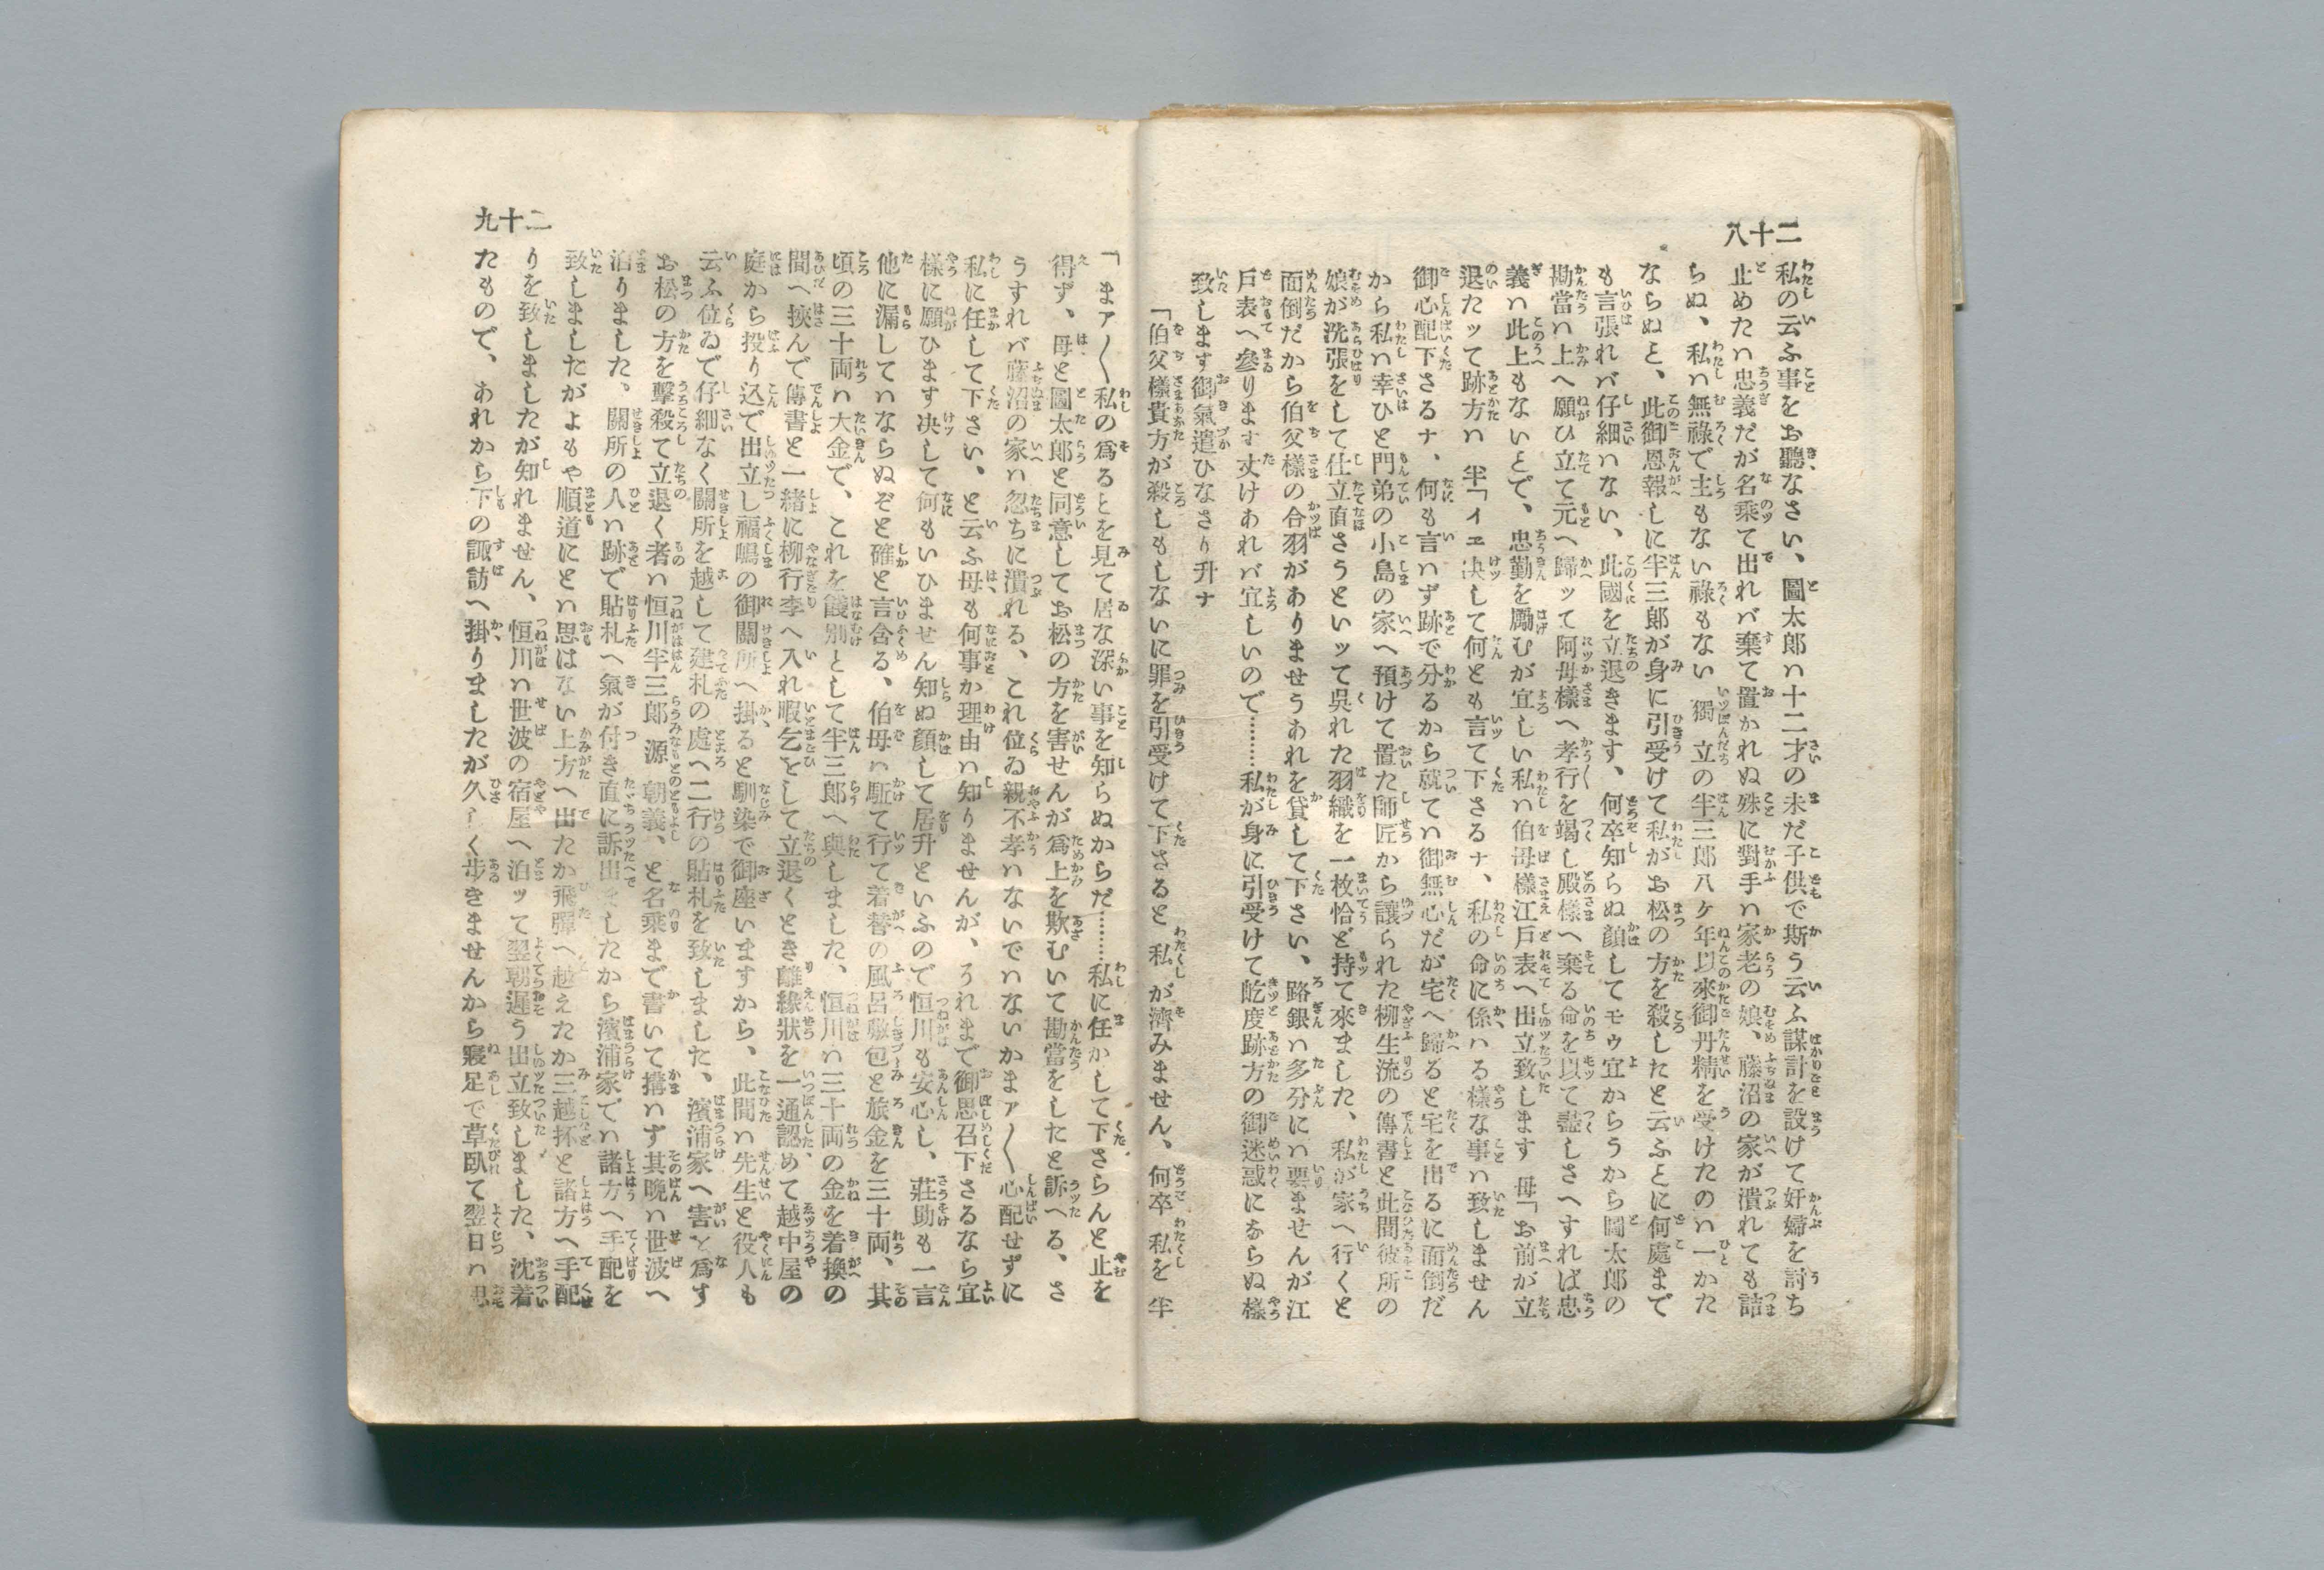 二十八
私の云ふ事をお聽なさい、圖太郎ハ十二才の未だ子供で斯う云ふ謀計を設けて奸婦を討ち
止めたハ忠義だが名乘て出れバ棄て置かれぬ殊に對手ハ家老の娘、藤沼の家が潰れても詰
らぬ、私ハ無祿で主もない祿もない獨立の半三郎八ケ年以來御丹精を受けたのハ一かた
ならぬと、此御恩報しに半三郎が身に引受けて私がお松の方を殺したと云ふとに何處まで
も言張れバ仔細ハない、此國を立退きます、何卒知らぬ顏してモウ宜からうから圖太郎の
勘當ハ上へ願ひ立て元へ歸ッて阿母樣へ孝行を竭し殿樣へ棄る命を以て盡しさへすれば忠
義ハ此上もないとで、忠勤を勵むが宜しい私ハ伯母樣江戸表へ出立致します 母「お前が立
退たッて跡方ハ 半「イヱ决して何とも言て下さるナ、私の命に係ハる樣な事ハ致しません
御心配下さるナ、何も言ハず跡で分るから就てハ御無心だが宅へ歸ると宅を出るに面倒だ
から私ハ幸ひと門弟の小島の家へ預けて置た師匠から讓られた柳生流の傳書と此間彼所の
娘が洗張をして仕立直さうといッて呉れた羽織を一枚恰ど持て來ました、私が家へ行くと
面倒だから伯父樣の合羽がありませうあれを貸して下さい、路銀ハ多分にハ要ませんが江
戸表へ參ります丈けあれバ宜しいので………私が身に引受けて屹度跡方の御迷惑にならぬ樣
致します御氣遣ひなさり升ナ
「伯父樣貴方が殺しもしないに罪を引受けて下さると私が濟みません、何卒私を 半
二十九
「まァ〱私の爲るとを見て居な深い事を知らぬからだ………私に任かして下さらんと止を
得ず、母と圖太郎と同意してお松の方を害せんが爲上を欺むいて勘當をしたと訴へる、さ
うすれバ藤沼の家ハ忽ちに潰れる、これ位ゐ親不孝ハないでハないかまァ〱心配せずに
私に任して下さい、と云ふ母も何事か理由ハ知りませんが、うれまで御思召下さるなら宜
樣に願ひます决して何もいひません知ぬ顏して居升といふので恒川も安心し、莊助も一言
他に漏していならぬぞと確と言含る、伯母ハ駈て行て着替の風呂敷包と旅金を三十両、其
頃の三十両ハ大金で、これを餞別として半三郎へ與しました、恒川ハ三十両の金を着換の
間へ挾んで傳書と一緒に柳行李へ入れ暇乞をして立退くとき離緣狀を一通認めて越中屋の
庭から投り込で出立し福嶋の御關所へ掛ると馴染で御座いますから、此間ハ先生と役人も
云ふ位ゐで仔細なく關所を越して建札の處へ二行の貼札を致しました、濱浦家へ害を爲す
お松の方を擊殺て立退く者ハ恒川半三郎源朝義、と名乘まで書いて搆ハず其晩ハ世波へ
泊りました、關所の人ハ跡で貼札へ氣が付き直に訴出をしたから濱浦家でハ諸方へ手配を
致しましたがよもや順道にとハ思はない上方へ出たか飛彈へ越えたか三越抔と諸方へ手配
りを致しましたが知れません、恒川ハ世波の宿屋へ泊ッて翌朝遲う出立致しました、沈着
たもので、あれから下の諏訪へ掛りましたが久しく步きませんから寢足で草臥て翌日ハ思